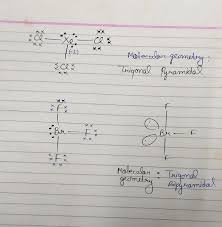 Cl Xe Cl
Cl
Molecular geometry :
Trigonal Pyramidal
F
Br F
F
F
Br F
F
Molecular geometry : Trigonal
Bipyramidal